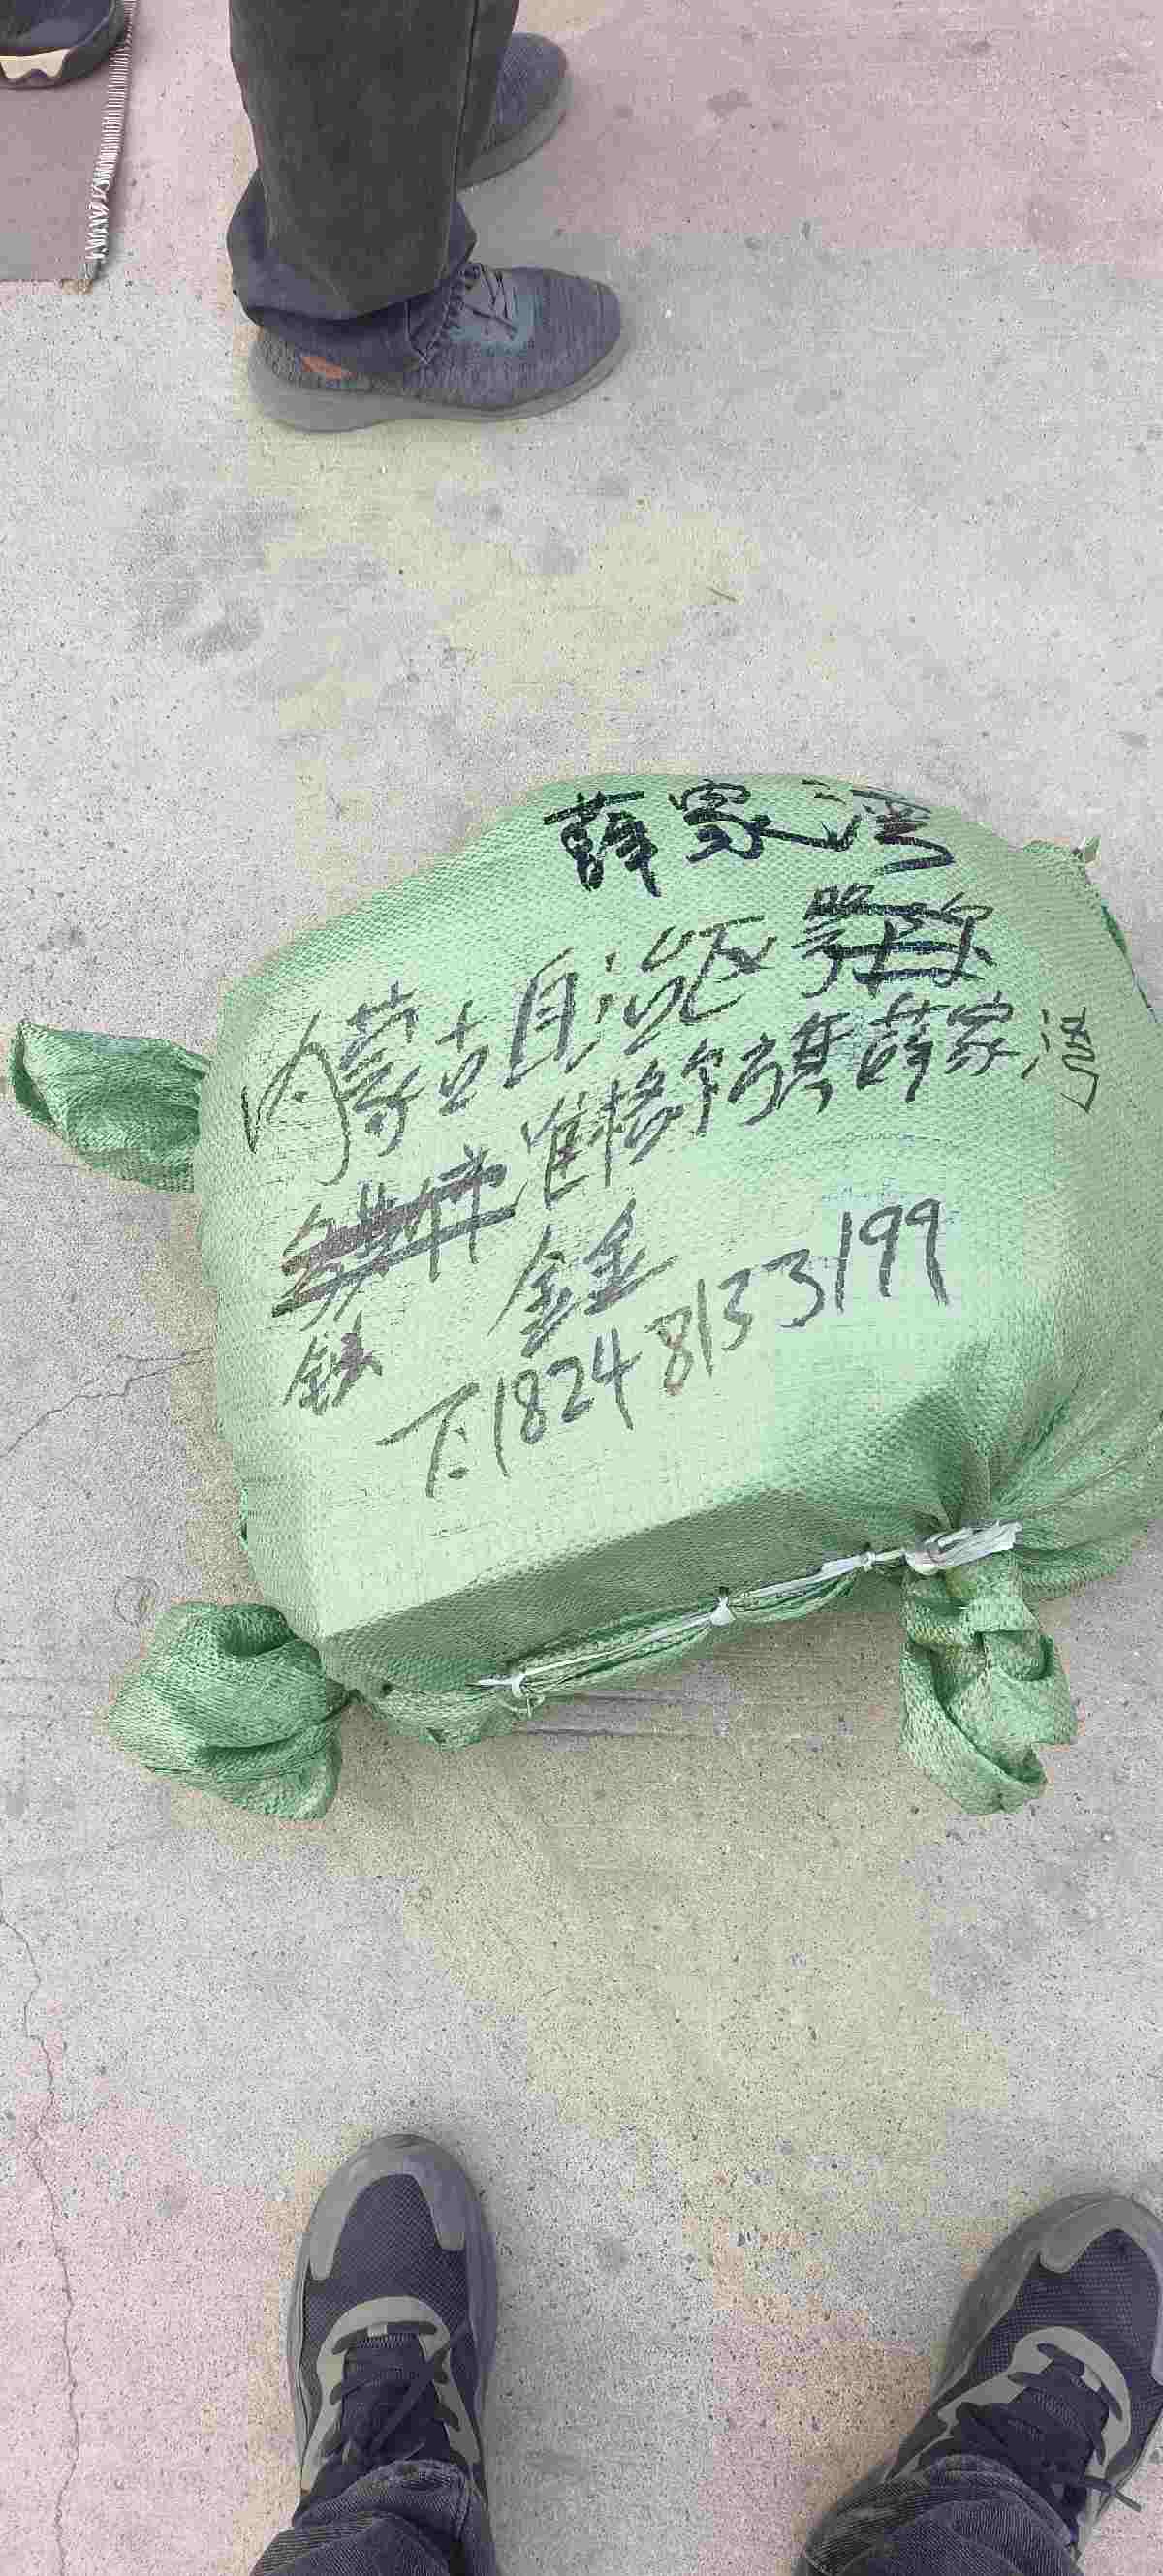 薛家湾
内蒙古自治区
准格尔旗薛家湾
镇 鑫
下18248133199